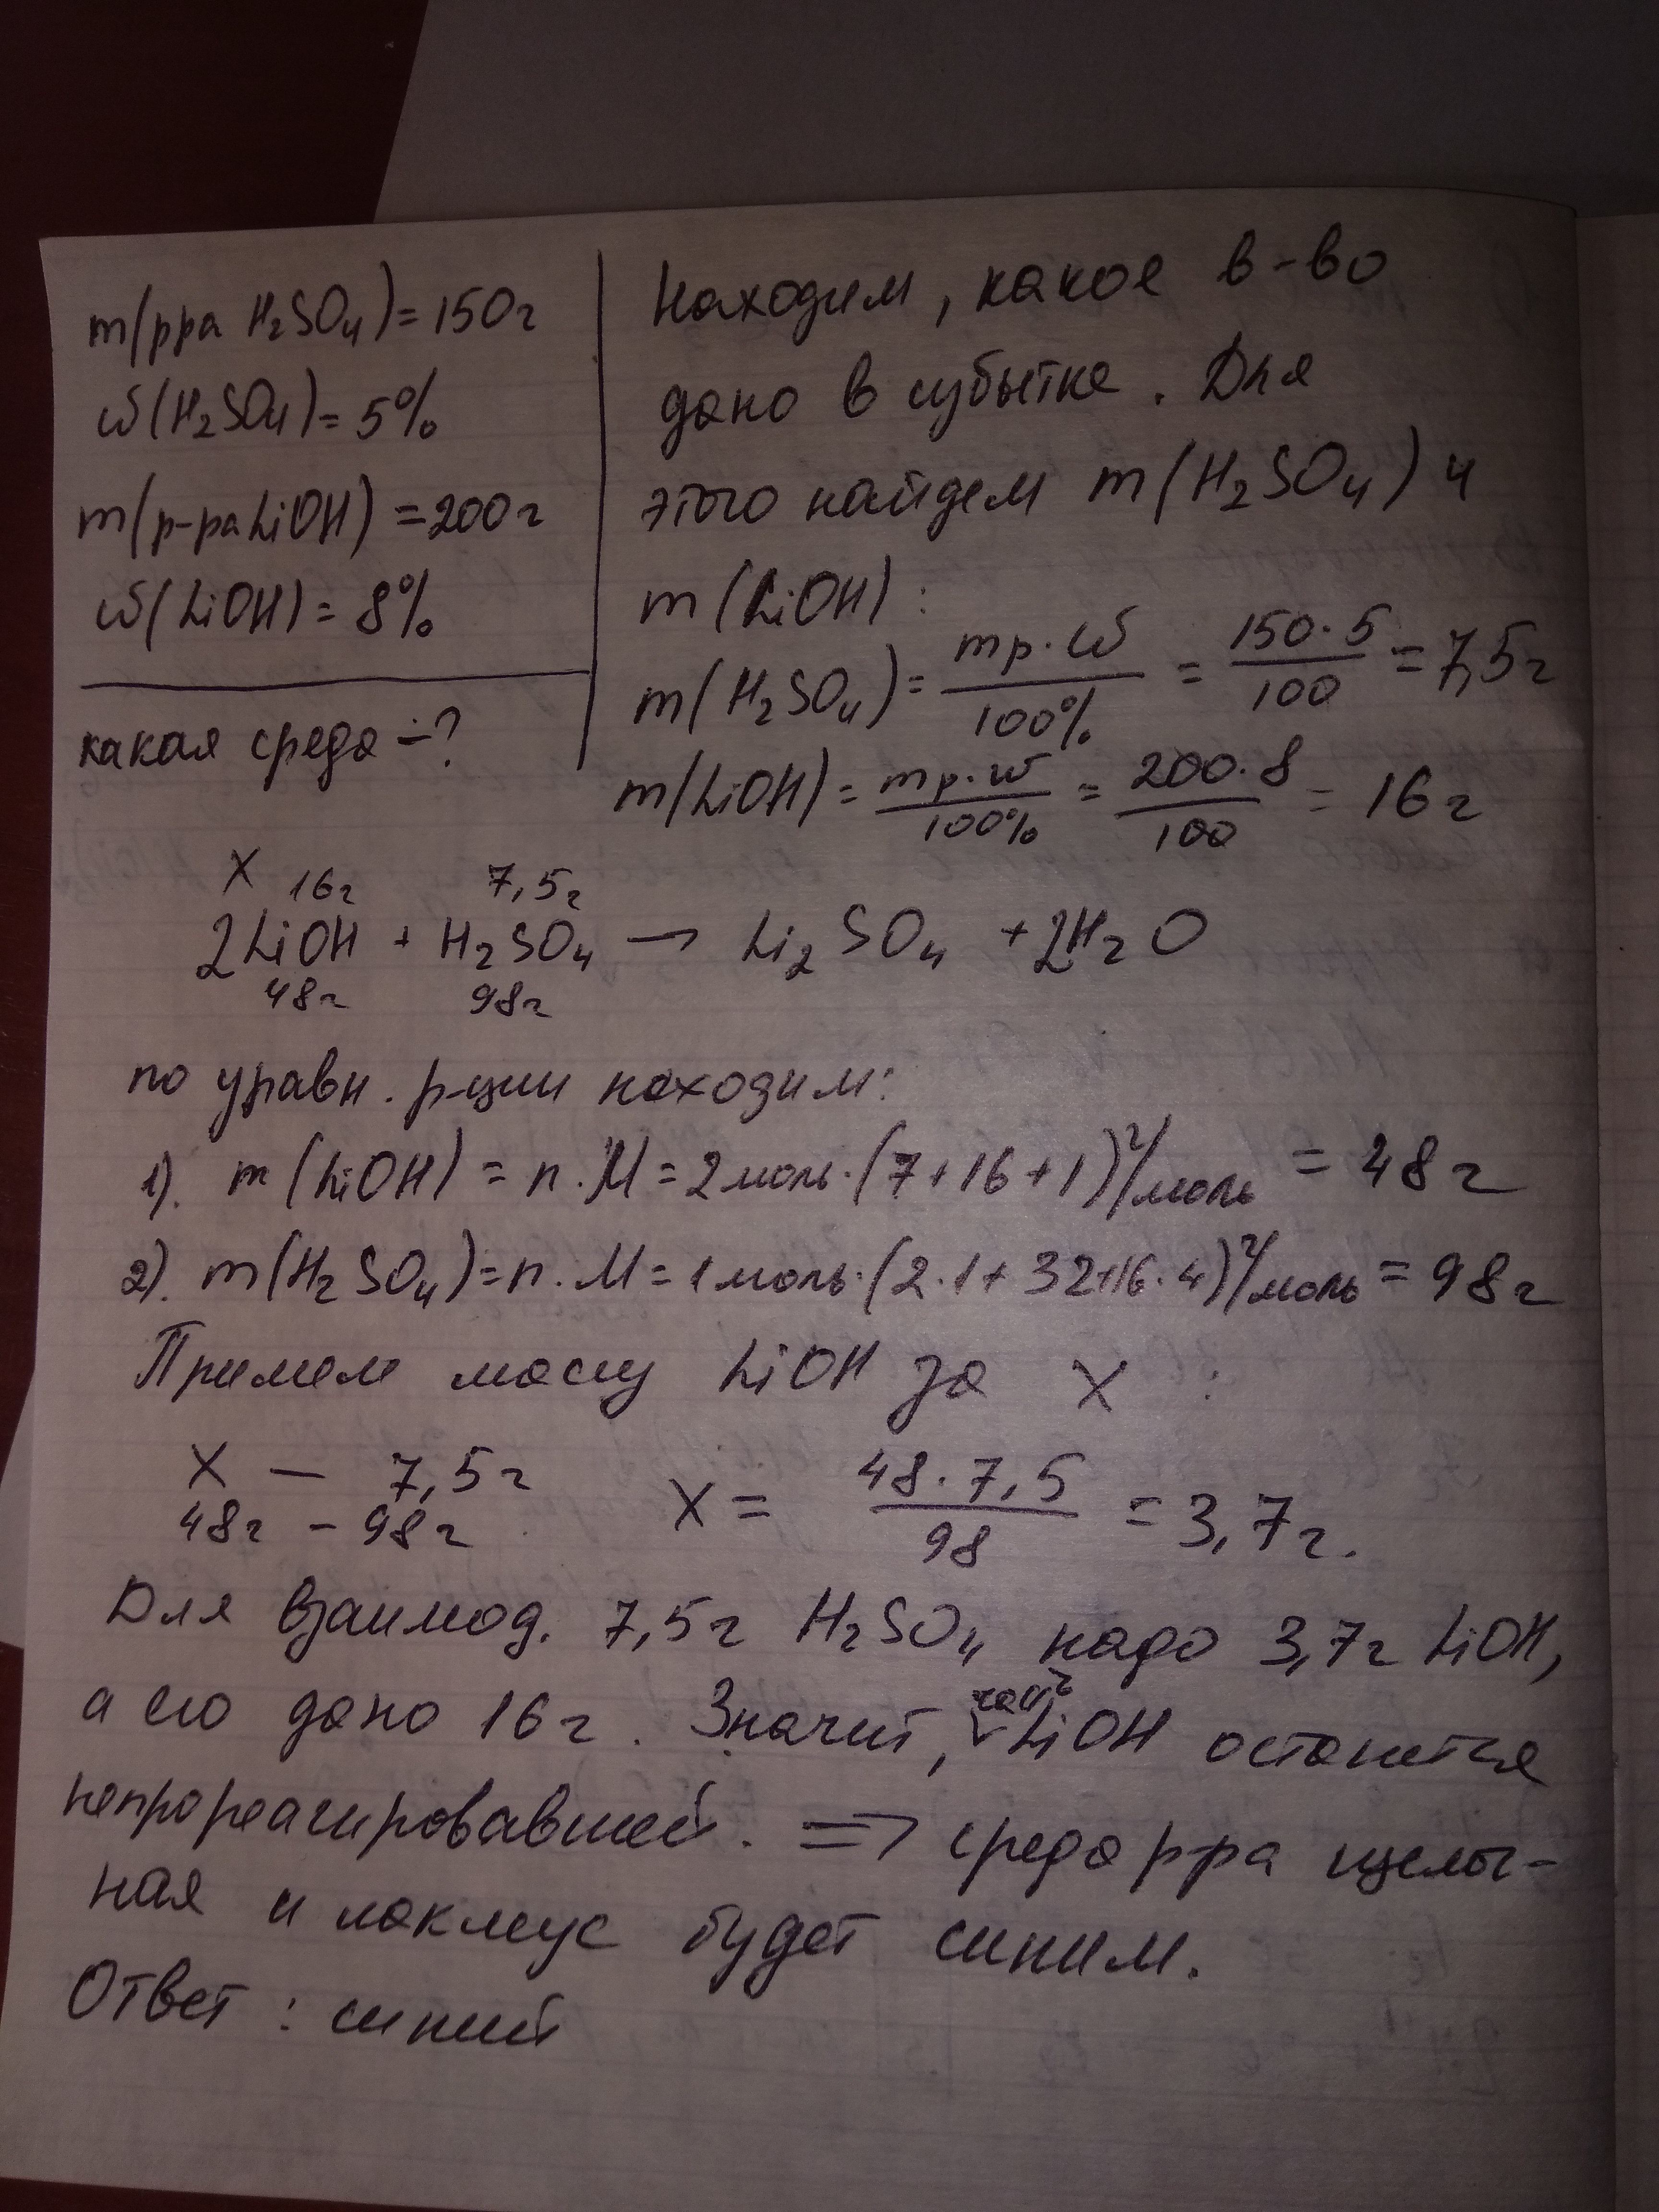 m(рра H₂SO₄) = 150г
ω(H₂SO₄) = 5%
m(р-ра LiOH) = 200г
ω(LiOH) = 8%
какая среда - ?
Находим, какое в-во
дано в избытке. Для
этого найдем m(H₂SO₄) и
m(LiOH):
m(H₂SO₄) = mр·ω/100% = 150·5/100 = 7,5г
m(LiOH) = mр·ω/100% = 200·8/100 = 16г
X 16г 7,5г
2LiOH + H₂SO₄ → Li₂SO₄ + 2H₂O
48г 98г
по уравн. р-ции находим:
1). m(LiOH) = n·M = 2моль·(7+16+1)г/моль = 48г
2). m(H₂SO₄) = n·M = 1моль·(2·1+32+16·4)г/моль = 98г
Примем массу LiOH за X :
X — 7,5г X = 48·7,5/98 = 3,7г.
48г - 98г
Для взаимод. 7,5г H₂SO₄ надо 3,7г LiOH,
а его дано 16г. Значит, часть LiOH останется
непрореагировавшей. => среда рра щелоч-
ная и лакмус будет синим.
Ответ: синий